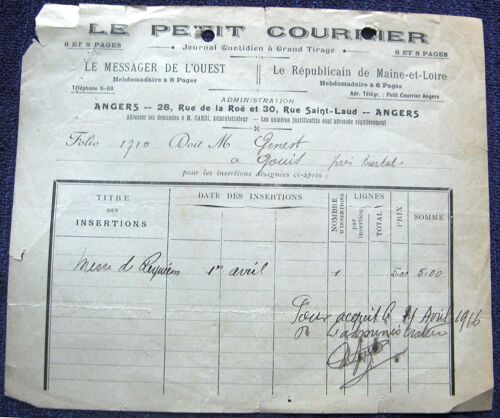 LE PETIT COURRIER
6 et 8 PAGES
Journal Quotidien à Grand Tirage
6 ET 8 PAGES
LE MESSAGER DE L'OUEST
Hebdomadaire à 8 Pages
Le Républicain de Maine-et-Loire
Hebdomadaire à 6 Pages
Téléphone 6-68
Adr. Télégr. : Petit Courrier Angers
ADMINISTRATION
ANGERS -- 28, Rue de la Roë et 30, Rue Saint-Laud -- ANGERS
Adresser les demandes à M. CANDI, Administrateur — Les numéros justificatifs sont adressés régulièrement
Folio 1710 Doit M Genest
à Gouis près Durtal
pour les insertions désignées ci-après :
TITRE DES INSERTIONS
DATE DES INSERTIONS
NOMBRE D'INSERTIONS
LIGNES
par insertion
TOTAL
PRIX
SOMME
Messe de Requiem 1er avril 1 5.00 5.00
Pour acquit le 11 Avril 1916